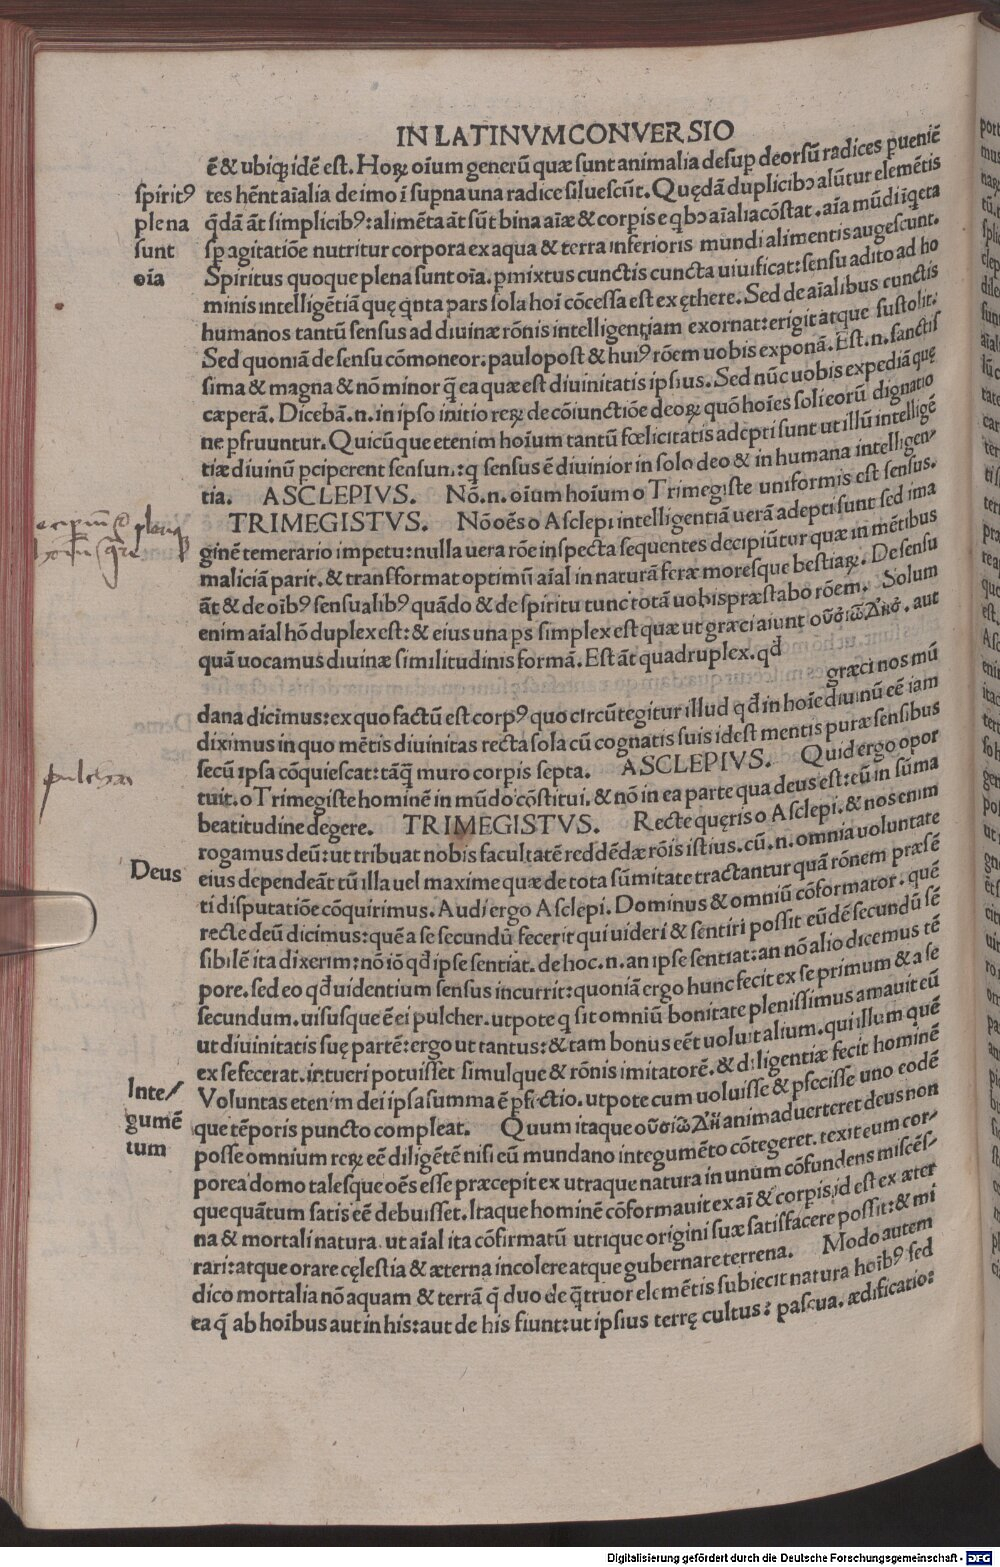 IN LATINVM CONVERSIO
ē & ubiqꝫ idē est. Hoꝝ oīum generū quæ sunt animalia desup deorsū radices pueniē
tes hēnt aīalia de imo ī supna una radice siluescūt. Quędā duplicibꝫ alūtur elemētis
q̄dā āt simplicibꝰ: alimēta āt sūt bina aīæ & corpis e qbꝫ aīalia cōstāt. aīa mūdi iꝗeta
sp̄ agitatiōe nutritur corpora ex aqua & terra inferioris mundi alimentis augescunt.
Spiritus quoque plena sunt oīa. pmixtus cunctis cuncta uiuificat: sensu adito ad ho
minis intelligētiā quę qnta pars sola hoī cōcessa est ex ęthere. Sed de aīalibus cunctis
humanos tantū sensus ad diuinæ rōnis intelligentiam exornat: erigit atque sustolit.
Sed quoniā de sensu cōmoneor. paulopost & huiꝰ rōem uobis exponā. Est .n. sanctis
sima & magna & nō minor q̄ ea quæ est diuinitatis ipsius. Sed nūc uobis expediā quę
cæperā. Dicebā .n. in ipso initio reꝝ de cōiunctiōe deoꝝ quō hoīes soli eorū dignatio
ne pfruuntur. Quicūque etenim hoīum tantū fœlicitatis adepti sunt ut illū intelligē
tiæ diuinū pciperent sensun.: q sensus ē diuinior in solo deo & in humana intelligen
tia. ASCLEPIVS. Nō .n. oium hoīum o Trimegiste uniformis est sensus.
TRIMEGISTVS. Nō oēs o Asclepi intelligentiā uerā adepti sunt sed ima
ginē temerario impetu: nulla uera rōe inspecta sequentes decipiūtur quæ in mētibus
maliciā parit. & transformat optimū aīal in naturā feræ moresque bestiaꝝ. De sensu
āt & de oībꝰ sensualibꝰ quādo & de spiritu tunc totā uobis præstabo rōem. Solum
enim aīal hō duplex est: & eius una ps simplex est quæ ut græci aiunt ουσιώΔης. aut
quā uocamus diuinæ similitudinis formā. Est āt quadruplex. qd
græci nos mū
dana dicimus: ex quo factū est corpꝰ quo circūtegitur illud qd in hoīe diuinū eē iam
diximus in quo mētis diuinitas recta sola cū cognatis suis idest mentis puræ sensibus
secū ipsa cōquiescat: tāq̄ muro corpis septa. ASCLEPIVS. Quid ergo opor
tuit. o Trimegiste hominē in mūdo cōstitui. & nō in ea parte qua deus est: eū in sūma
beatitudine degere. TRIMEGISTVS. Recte quęris o Asclepi. & nos enim
rogamus deū: ut tribuat nobis facultatē reddēdæ rōis istius. cū .n. omnia uoluntate
eius dependeāt tū illa uel maxime quæ de tota sūmitate tractantur quā rōnem præsē
ti disputatiōe cōquirimus. Audi ergo Asclepi. Dominus & omniū cōformator. quē
recte deū dicimus: quē a se secundū fecerit qui uideri & sentiri possit eūdē secundū sē
sibilē ita dixerim: nō iō qd ipse sentiat. de hoc .n. an ipse sentiat: an nō alio dicemus tē
pore. sed eo qd uidentium sensus incurrit: quoniā ergo hunc fecit ex se primum & a se
secundum. uisusque ē ei pulcher. utpote q sit omniū bonitate plenissimus amauit eū
ut diuinitatis suę partē: ergo ut tantus: & tam bonus eēt uoluit alium. qui illum quē
ex se fecerat. intueri potuisset simulque & rōnis imitatorē. & diligentiæ fecit hominē
Voluntas etenim dei ipsa summa ē pfectio. utpote cum uoluisse & pfecisse uno eodē
que tēporis puncto compleat. Quum itaque ουσιώΔη animaduerteret deus non
posse omnium reꝝ eē diligētē nisi eū mundano integumēto cōtegeret. texit eum cor-
porea domo talesque oēs esse præcepit ex utraque natura in unum cōfundens miscēs-
que quātum satis eē debuisset. Itaque hominē cōformauit ex aī & corpis id est ex æter
na & mortali natura ut aīal ita cōfirmatū utrique origini suæ satisfacere possit: & mi
rari: atque orare cęlestia & æterna incolere atque gubernare terrena. Modo autem
dico mortalia nō aquam & terrā q̄ duo de q̄ttuor elemētis subiecit natura hoībꝰ sed
ea q̄ ab hoībus aut in his: aut de his fiunt: ut ipsius terrę cultus: pascua. ædificatio:
spiritꝰ
plena
sunt
oīa
pulcher
Deus
Inte/
gumē
tum
Digitalisierung gefördert durch die Deutsche Forschungsgemeinschaft - DFG